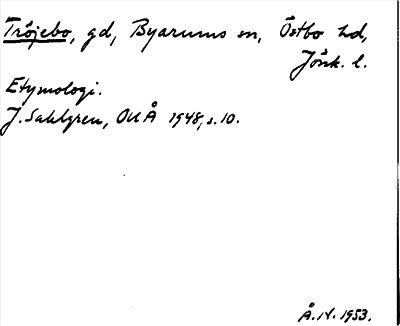 Tröjebo, gd, Byarums sn, Östbo hd,
Jönk. l.
Etymologi.
J. Sahlgren, OUÅ 1948, s. 10.
Å. N. 1953.